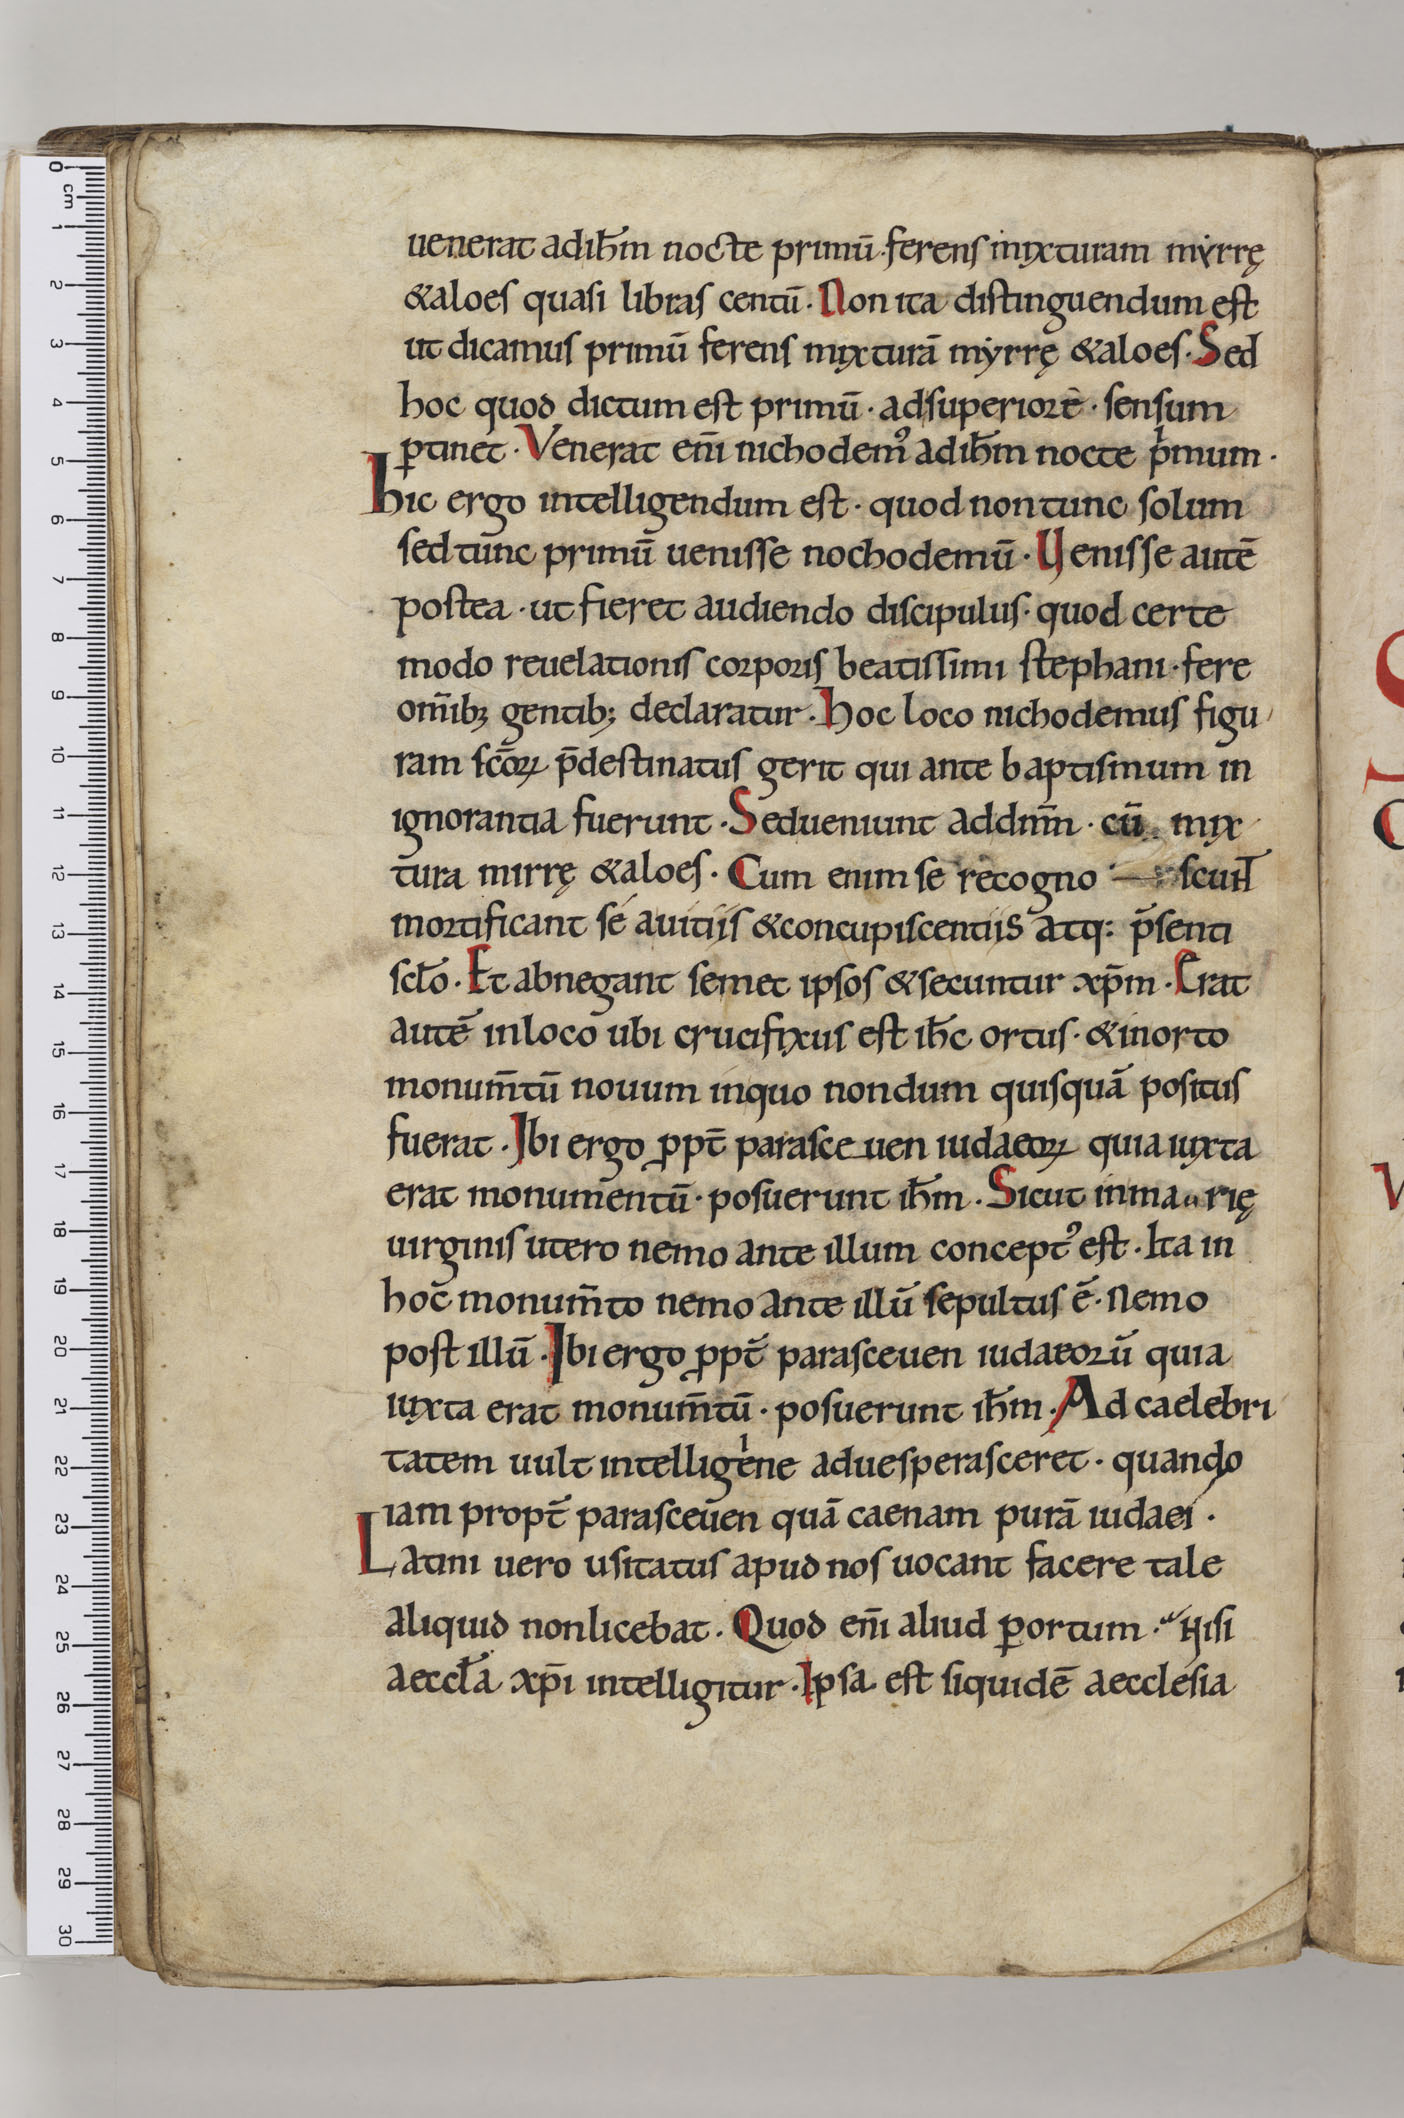 uenerat adih̄m nocte primū · ferens mixturam myrrę
&aloes quasi libras centū · Non ita distinguendum est
ut dicamus primū ferens mixturā myrrę &aloes · Sed
hoc quod dictum est primū · adsuperiorē · sensum
ꝑtinet · Venerat eni̅ nichodemꝰ adih̄m nocte pͥmum ·
hic ergo intelligendum est · quod non tunc solum
sed tunc primū uenisse nochodemū · Uenisse autē
postea · ut fieret audiendo discipulus · quod certe
modo reuelationis corporis beatissimi stephani · fere
om̄ib; gentib; declaratur · hoc loco nichodemus figu
ram sc̄oꝝ p̄destinatus gerit qui ante baptismum in
ignorantia fuerunt · Sedueniunt addnm̄ · cū mix
tura mirrę &aloes · Cum enim se recogno scuнt̄
mortificant sé auitiis &concupiscentiis atq: p̄senti
scl̄o · Et abnegant semet ipsos &secuntur xp̄m · Erat
autē inloco ubi crucifixus est ih̄c ortus · &inorto
monum̄tū nouum inquo nondum quisquā positus
fuerat · Ibi ergo ꝓpt̄ parasceuen iudaeoꝝ quia iuxta
erat monumentū · posuerunt ih̄m · Sicut inmarię
uirginis utero nemo ante illum conceptꝰ est · Ita in
hoc monum̄to nemo ante illū sepultus ē · Nemo
post illū · Ibi ergo ꝓpt̄ parasceuen iudaeorū quia
iuxta erat monum̄tū · posuerunt ih̄m · Ad caelebri
tatem uult intelligene aduesperasceret · quando
iam propt̄ parasceuen quā caenam purā iudaei ·
Latini uero usitatus apud nos uocant facere tale
aliquid nonlicebat · Quod eni̅ aliud ꝑortum · Nisi
aeccl̄a xp̄i intelligitur · Ipsa est siquidē aecclesia
0 cm
1
2
3
4
5
6
7
8
9
10
11
12
13
14
15
16
17
18
19
20
21
22
23
24
25
26
27
28
29
30